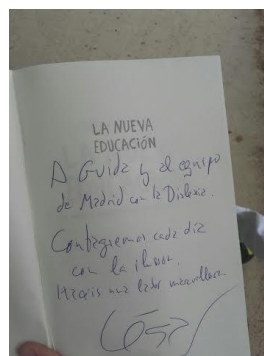 LA NUEVA
EDUCACIÓN
A Guida y al equipo
de Madrid con la Dislexia.
Contagiemos cada día
con la ilusión.
Hacéis una labor maravillosa.
César